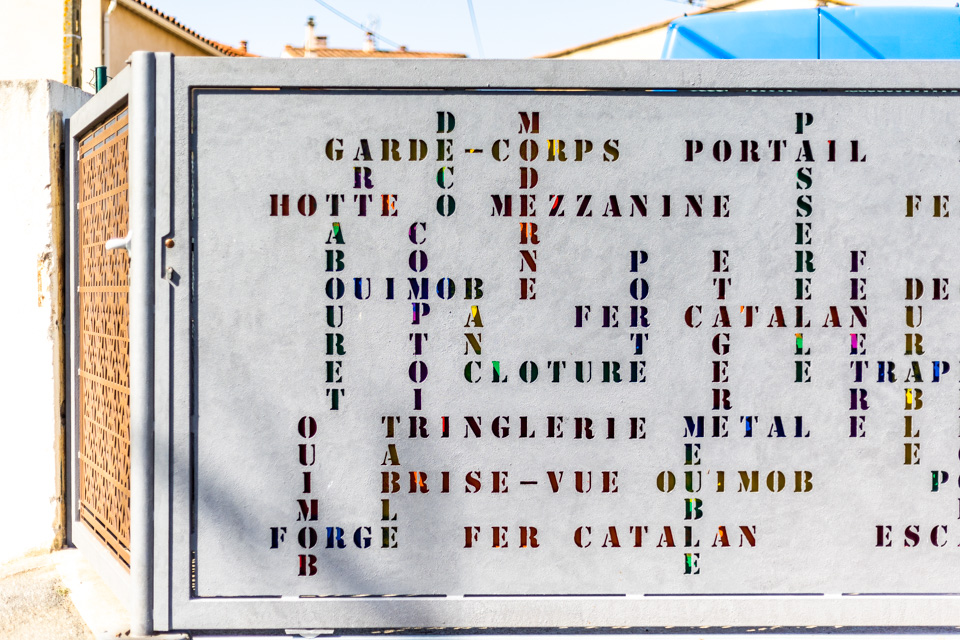 GARDE-CORPS PORTAIL
HOTTE MEZZANINE FE
OUIMOB DE
FER CATALAN
CLOTURE TRAP
TRINGLERIE METAL
BRISE-VUE OUIMOB
FORGE FER CATALAN ESC
DECO
MODERNE
PASSERELLE
ART
TABOURET
COMPTOIR
BANC
PORTE
ETAGERE
FENETRE
DURABLE
OUIMOB
TABLE
MEUBLE